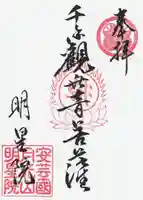 奉拝
千手觀世音菩薩
明星院
安藝國
明星院